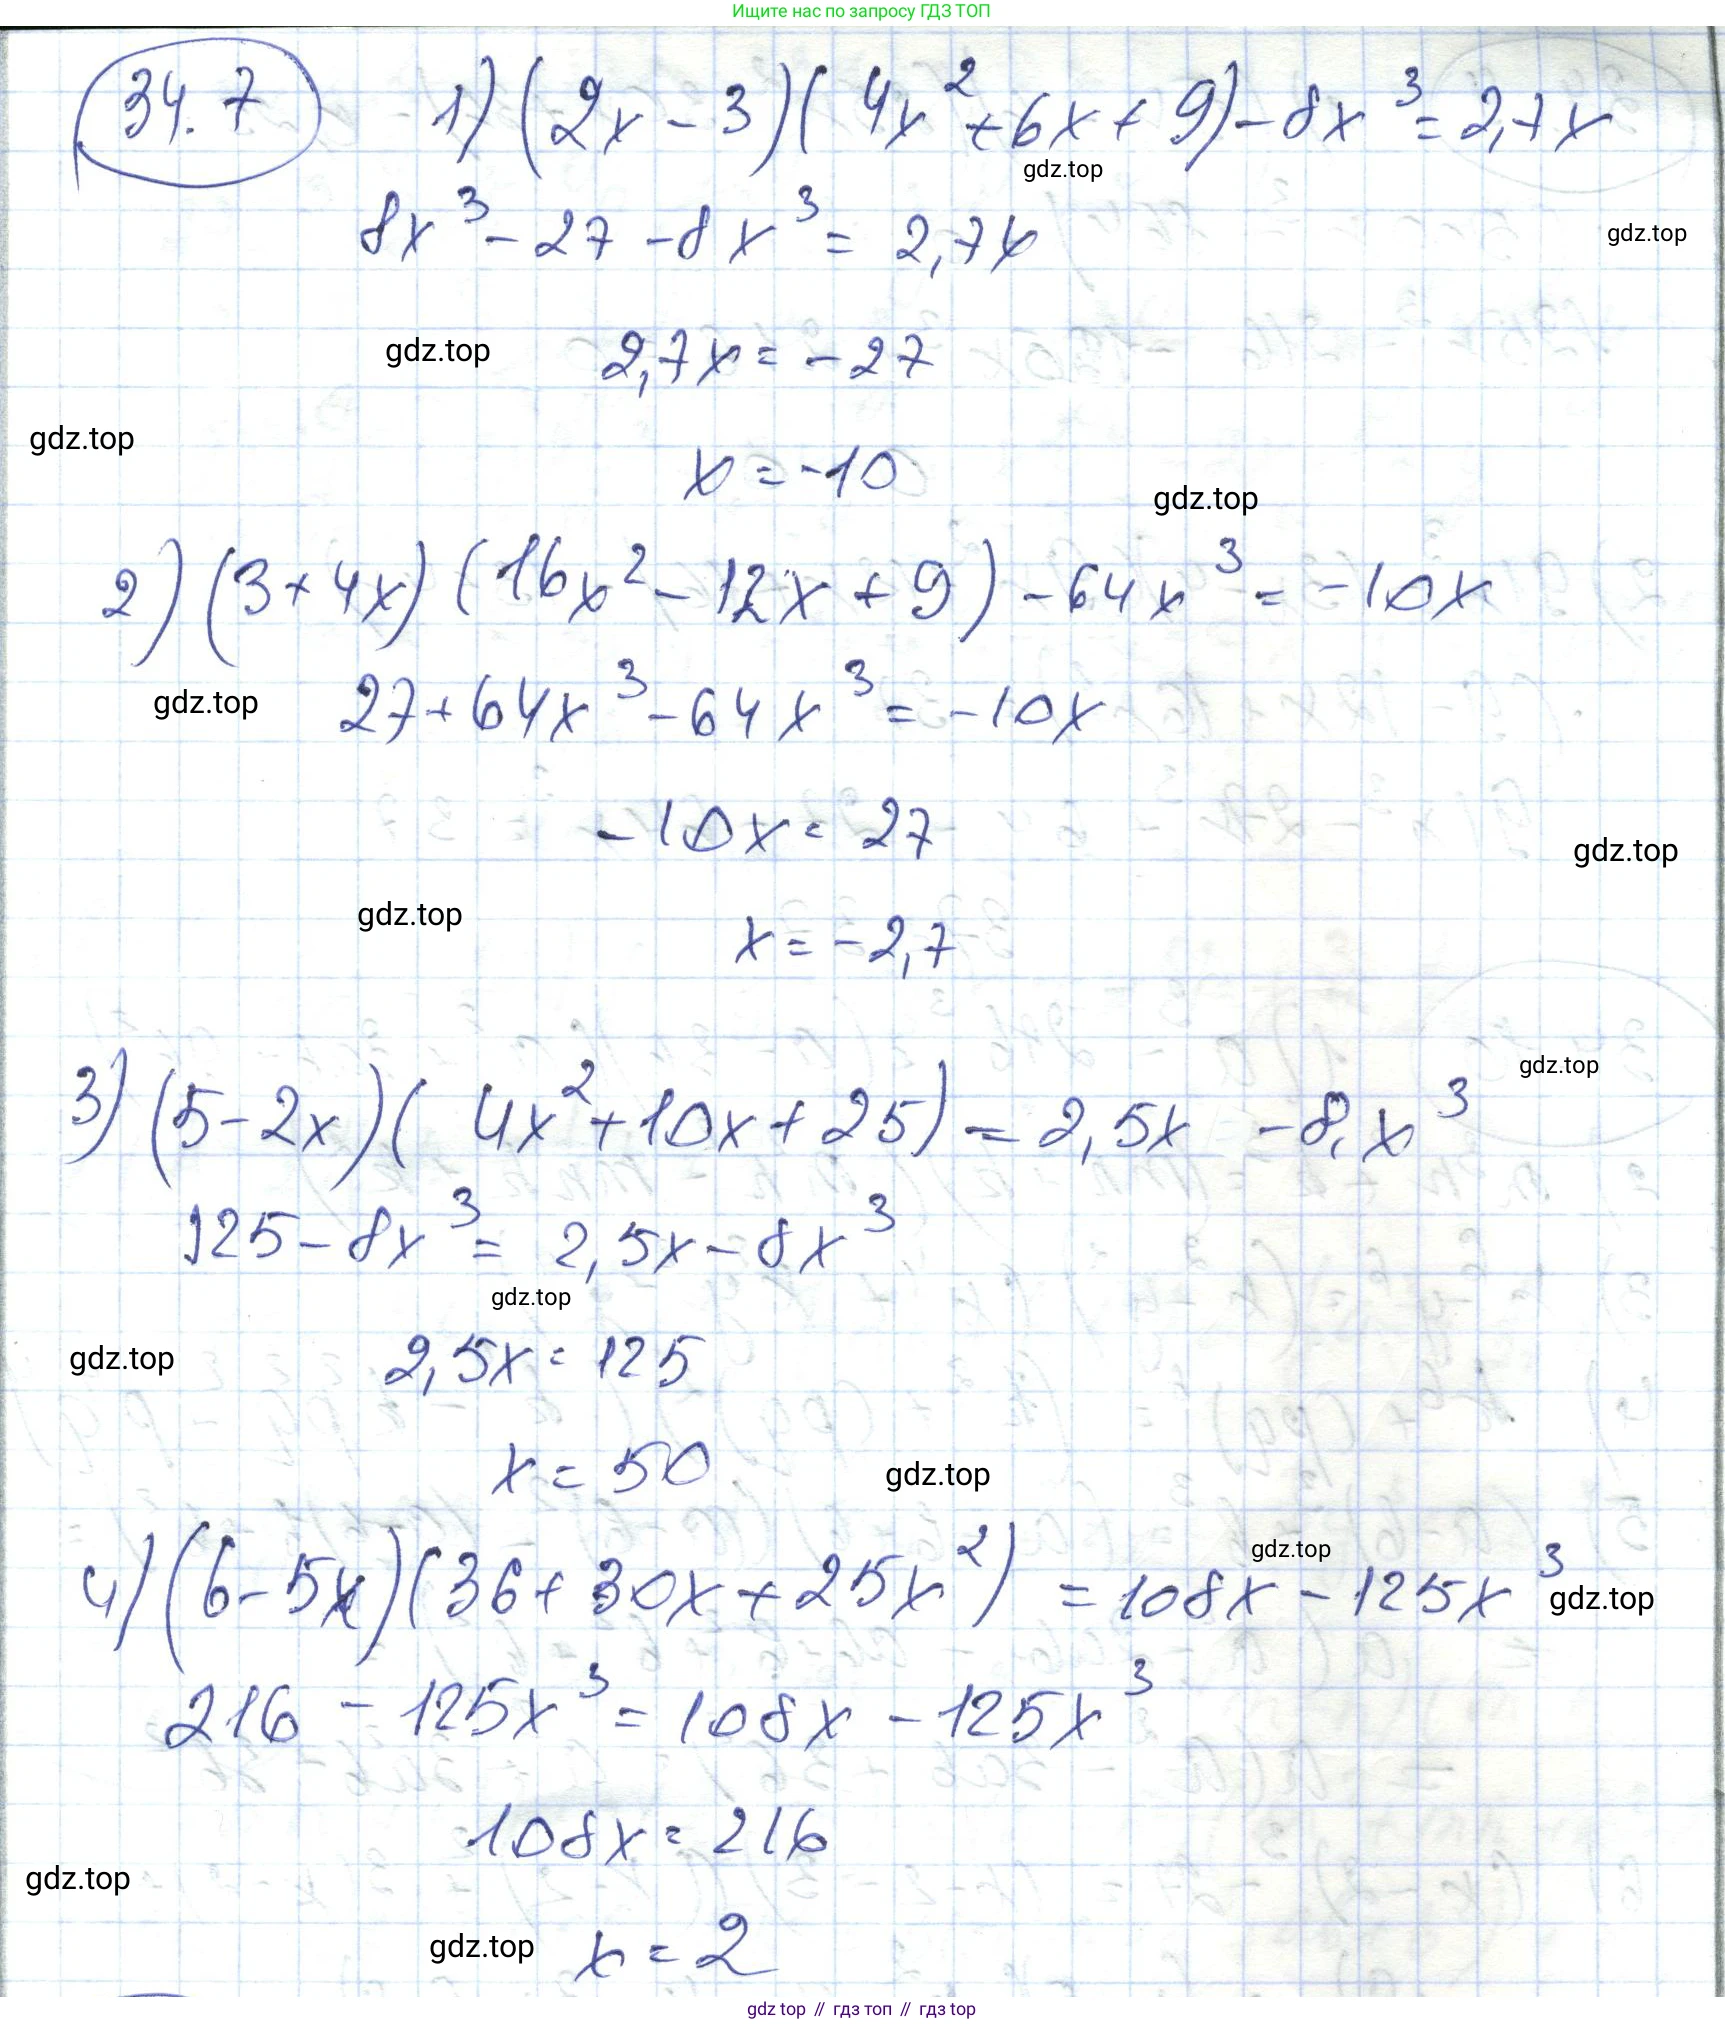 Ищите нас по запросу ГДЗ ТОП
34.7 1) (2x - 3)(4x² + 6x + 9) - 8x³ = 2,7x
gdz.top
8x³ - 27 - 8x³ = 2,7x
gdz.top
gdz.top 2,7x = -27
gdz.top
x = -10
gdz.top
2) (3 + 4x)(16x² - 12x + 9) - 64x³ = -10x
gdz.top 27 + 64x³ - 64x³ = -10x
-10x = 27
gdz.top
gdz.top x = -2,7
gdz.top
3) (5 - 2x)(4x² + 10x + 25) = 2,5x - 8x³
125 - 8x³ = 2,5x - 8x³
gdz.top
gdz.top 2,5x = 125
x = 50 gdz.top
gdz.top
4) (6 - 5x)(36 + 30x + 25x²) = 108x - 125x³ gdz.top
216 - 125x³ = 108x - 125x³
108x = 216
gdz.top
gdz.top x = 2
gdz top // гдз топ // гдз top